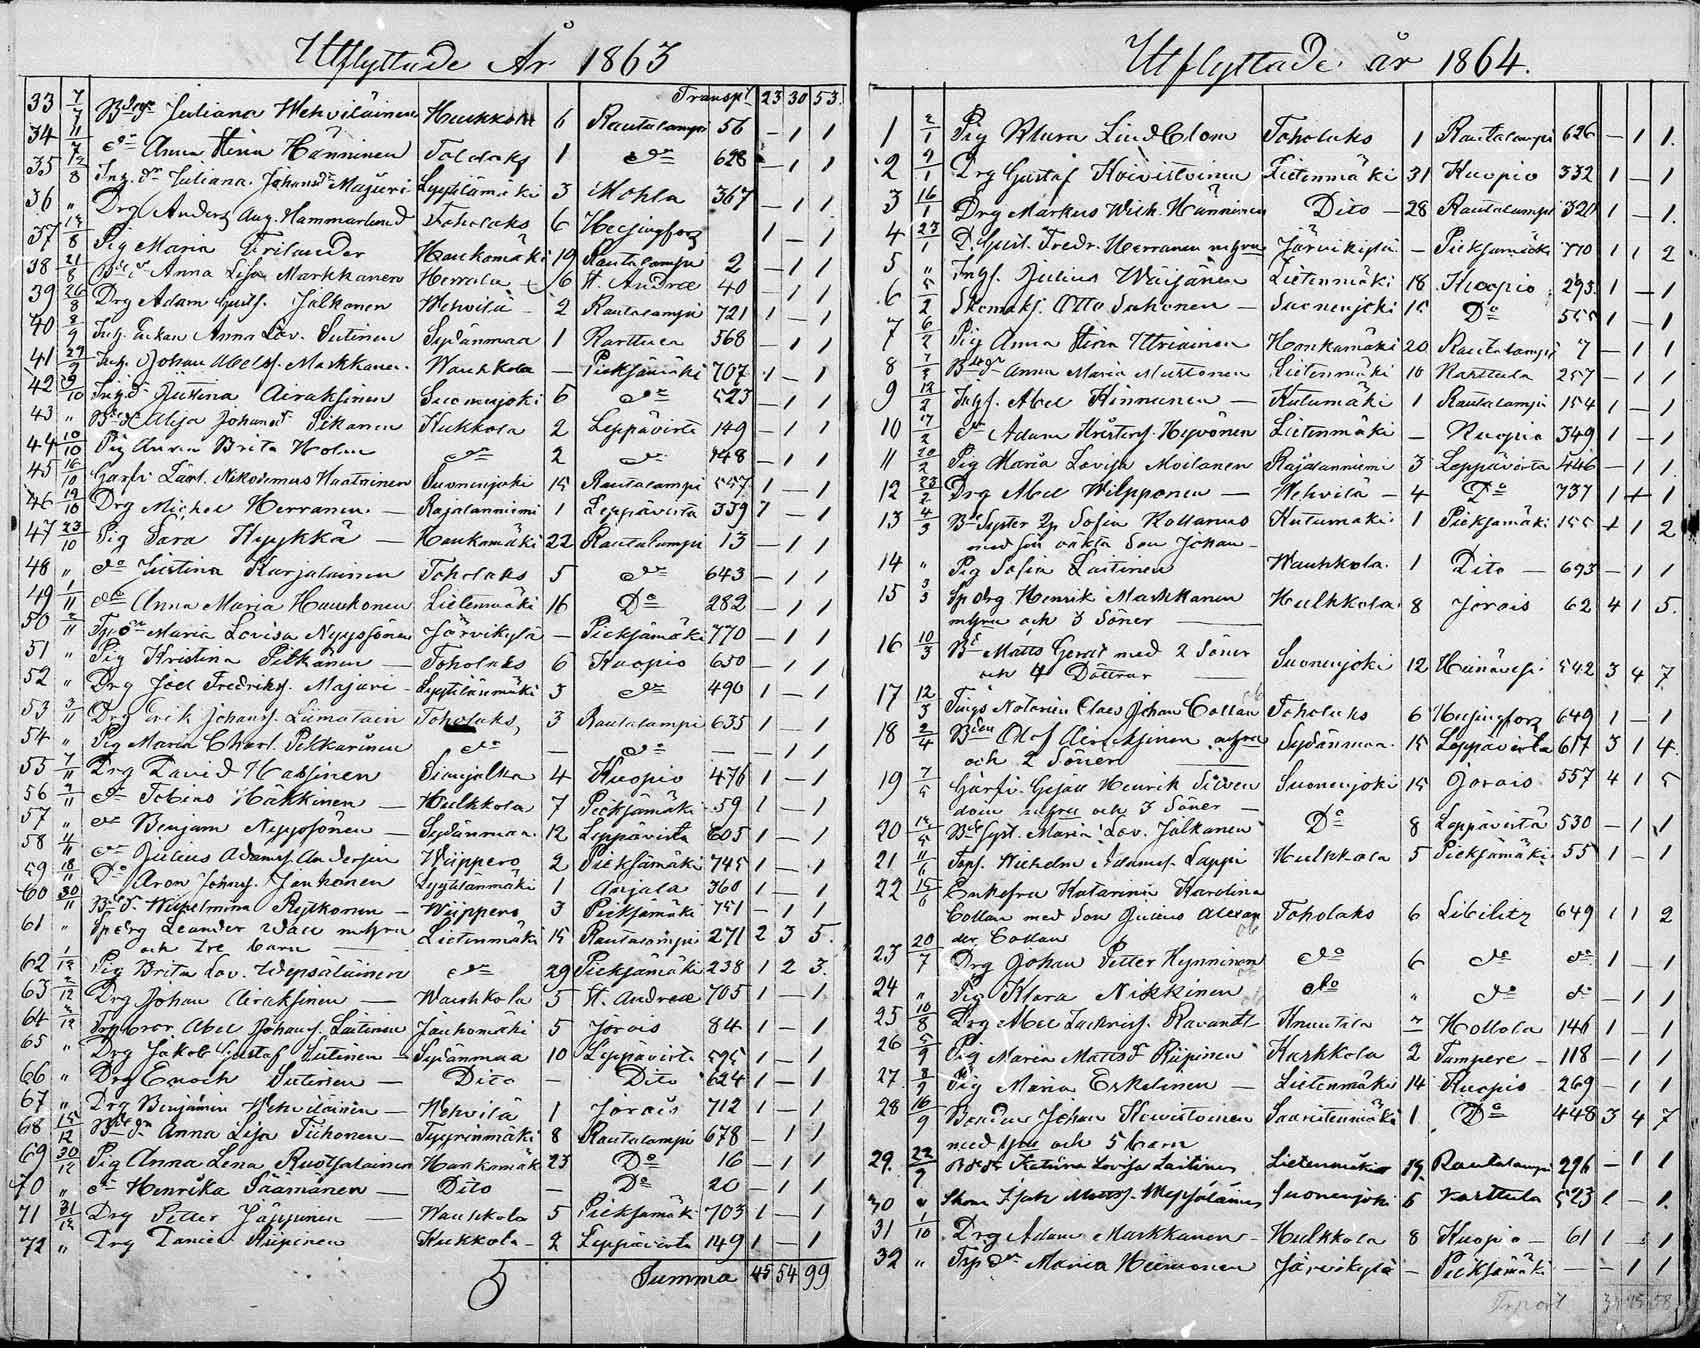 Utflyttade År 1863
Transpt 23 30 53.
33 7/7 Bddr Juliana Wehviläinen Haukkola 6 Rautalampi 56 – 1 1
34 11/7 do Anna Stina Hänninen Toholaks 1 do 628 – 1 1
35 12/8 Ing. dr Juliana Johansdr Majuri Lyytilämäki 3 Mohla 367 – 1 1
36 " Drg Anders Aug. Hammarlund Toholaks 6 Helsingfors 1 – 1
37 14/8 Pig Maria Frilander Haukomäki 19 Rautalampi 2 – 1 1
38 21/8 Anna Lisa Markkanen Herrala 6 St. Andreæ 40 – 1 1
39 26/8 Drg Adam Gust. Jalkanen Wehvilä – 2 Rautalampi 721 1 – 1
40 Inh. Enkan Anna Lov. Sutinen Sydänmaa 1 Karttula 568 – 1 1
41 29/9 Johan Abelsf. Markkanen Wauhkola – Pieksämäki 707 1 – 1
42 9/10 Ing dr Justina Airaksinen Suonenjoki 6 do 523 – 1 1
43 " Johansdr Pikanen Kukkola 2 Leppävirta 149 – 1 1
44 10/10 Pig Anna Brita Holm do 2 do 148 – 1 1
45 16/10 Garfv. Lärl. Nikodemus Haatainen Suonenjoki 15 Rautalampi 557 1 – 1
46 19/10 Drg Michel Herranen – Rajalanniemi 1 Leppävirta 339 1 – 1
47 23/10 Pig Sara Hyykkä – Haukamäki 22 Rautalampi 13 – 1 1
48 " do Justina Karjalainen Toholaks 5 do 643 – 1 1
49 1/11 do Anna Maria Haukonen Lietenmäki 16 Do 282 – 1 1
50 2/11 Tp dr Maria Lovisa Nyyssönen Järvikylä – Pieksämäki 770 – 1 1
51 " Pig Kristina Pitkänen – Toholaks 6 Kuopio 650 – 1 1
52 " Drg Joel Fredriksf. Majuri – Lyytilänmäki 3 do 490 1 – 1
53 3/11 Drg Erik Johansf. Liimatain Toholaks 3 Rautalampi 635 1 – 1
54 " Pig Maria Charl. Pekkarinen do – do – – 1 1
55 7/11 Drg David Hassinen Sianjalka 4 Kuopio 476 1 – 1
56 9/11 do Tobias Häkkinen – Hulkkola 7 Pieksämäki 59 1 – 1
57 " do Benjam Nyyssönen – Sydänmaa 12 Leppävirta 605 1 – 1
58 11/11 do Julius Adamsf. Andersin Wiippero 2 Pieksämäki 745 1 – 1
59 18/11 Do Aron Johansf. Jauhonen Lyytilänmäki 1 Anjala 360 1 – 1
60 30/11 Bdr Wilhelmina Rytkonen – Wiippero 3 Pieksämäki 751 – 1 1
61 " Sp drg Leander Wall m hyru Lietenmäki 15 Rautalampi 271 2 3 5.
och tre barn
62 1/12 Pig Brita Lov. Wepsäläinen do 29 Pieksämäki 238 1 2 3.
63 2/12 Drg Johan Airaksinen – Wauhkola 5 St. Andreæ 705 1 – 1
64 4/12 Abel Johansf. Laitinen Jauhomäki 5 Jorois 84 1 – 1
65 " Drg Jakob Gustaf Sutinen – Sydänmaa 10 Leppävirta 595 1 – 1
66 " Drg Enoch Sutinen – Dito – Dito 624 1 – 1
67 " Drg Benjamin Wehviläinen – Wehvilä 1 Jorois 712 1 – 1
68 15/12 Anna Lisa Tiihonen – Tyyrinmäki 8 Rautalampi 678 – 1 1
69 30/12 Pig Anna Lena Ruotsalainen Haukomäk 23 Do 16 – 1 1
70 " do Henrika Säämänen – Dito – Do 20 – 1 1
71 31/12 Drg Petter Jäppinen – Wauhkola 5 Pieksämäki 703 1 – 1
72 " Drg Daniel Riipinen Kukkola – 2 Leppävirta 149 1 – 1
Summa 45 54 99
Utflyttade år 1864.
1 2/1 Pig Klara Lindblom Toholaks 1 Rautalampi 626 – 1 1.
2 9/1 Drg Gustaf Koivistoinen Lietenmäki 31 Kuopio 332 1 – 1
3 16/1 Drg Markus Wilh. Hänninen Dito – 28 Rautalampi 320 1 – 1.
4 23/1 D. Gust. Fredr. Herranen m hyru Järvikylä – Pieksämäki 770 1 1 2
5 " Ingf. Julius Wäisänen Lietenmäki 18 Kuopio 293 1 – 1
6 5/2 Skomakf. Otto Suhonen – Suonenjoki 15 Do 555 1 – 1
7 6/2 Pig Anna Stina Utriainen Haukamäki 20 Rautalampi 7 – 1 1
8 Anna Maria Mustonen Lietenmäki 10 Karttula 257 – 1 1
9 12/2 Ingf. Abel Kinnunen – Kutumäki 1 Rautalampi 154 1 – 1
10 17/2 do Adam Kristers. Hyvönen Lietenmäki – Kuopio 349 1 – 1
11 20/2 Pig Maria Lovisa Moilanen Rajalanniemi 3 Leppävirta 446 – 1 1.
12 23/2 Drg Abel Wilpponen – Wehvilä – 4 Do 737 1 – 1
13 4/3 Syster Sofia Kollanus Kutumäki 1 Pieksämäki 155 1 1 2
med sin oäkta Son Johan –
14 " Pig Sofia Laitinen Wauhkola. 1 Dito – 693 – 1 1
15 5/3 Sp drg Henrik Markkanen Hulkkola 8 Jorois 62 4 1 5.
m hyru och 3 Söner
16 10/3 Mats Gerat med 2 Söner Suonenjoki 12 Heinävesi 542 3 4 7.
och 4 Döttrar
17 12/3 Tings Notarien Claes Johan Collan Toholaks 6 Helsingfors 649 1 – 1
18 2/4 Bden Olof Airaksinen m hyru Sydänmaa. 15 Leppävirta 617 3 1 4.
och 2 Söner
19 7/5 Garfv. Gesäll Henrik Silven Suonenjoki 15 Jorois 557 4 1 5
m hyru och 3 Söner –
20 Syst. Maria Lov. Jalkanen Do 8 Leppävirta 530 – 1 1
21 11/6 Torpf. Wilhelm Adamsf. Lappi Hulkkola 5 Pieksämäki 55 1 – 1
22 15/6 Enkefru Katarina Karolina
Collan med Son Julius Alexan Toholaks 6 Libelitz 649 1 1 2
der Collan
23 20/7 Drg Johan Petter Kynninen do 6 do do 1 – 1
24 " Pig Klara Nikkinen do " do do – 1 1
25 10/8 Drg Abel Zachrisf. Ravandt Knuutila Hollola 146 1 – 1
26 5/9 Pig Maria Mattsdr Riipinen Karkkola 2 Tampere – 118 – 1 1
27. 8/9 Pig Maria Eskelinen – Lietenmäki 14 Kuopio – 269 – 1 1
28 16/9 Bonden Johan Koivistoinen Saaristenmäki 1 Do 448 3 4 7
med hru och 5 barn
29. 22/9 Katarina Lovisa Laitinen Lietenmäki 19. Rautalampi 296 – 1 1
30 " Skom. Isak Mattsf. Wepsäläinen Suonenjoki 6 Karttula 523 1 – 1.
31 1/10 Drg Adam Markkanen – Hulkkola 8 Kuopio – 61 1 – 1
32 " Trp dr Maria Heimonen Järvikylä – Pieksämäki – – 1 1
Trport